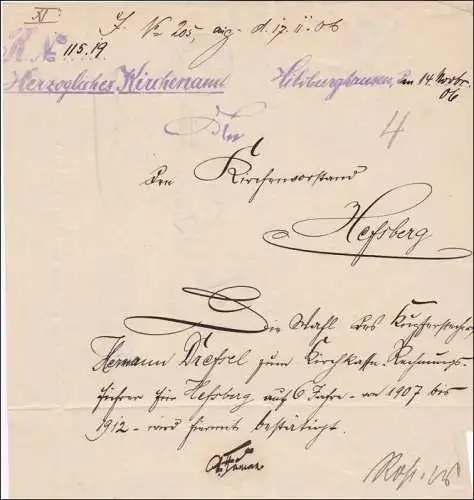 XI
J. No 205, eing. d. 17. 11. 06
K. No 115.19
Herzogliches Kirchenamt Hildburghausen, den 14. Novbr. 06
An
4
den Kirchenvorstand
Heßberg
Die Wahl des Kupferstechers
Hermann Dressel zum Kirchkasse-Rechnungs-
führer für Heßberg auf 6 Jahre - von 1907 bis
1912 - wird hiermit bestätigt.